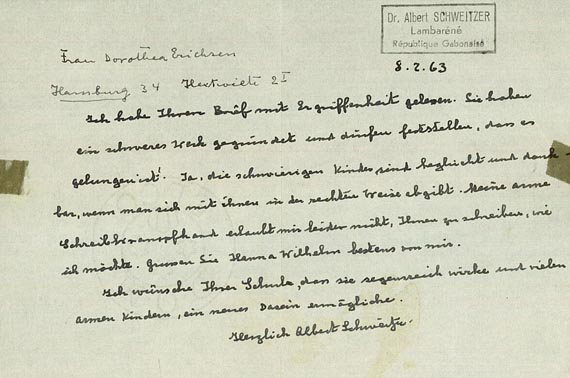 Dr. Albert SCHWEITZER
Lambaréné
République Gabonaise
8.2.63
Frau Dorothea Erichsen
Hamburg 34
Ich habe Ihren Brief mit Ergriffenheit gelesen. Sie haben
ein schweres Werk gegründet und dürfen feststellen, dass es
gelungen ist! Ja, die schwierigen Kinder sind beglückt und dank-
bar, wenn man sich mit ihnen in der rechten Weise abgibt. Meine arme
Schreibkrampfhand erlaubt mir leider nicht, Ihnen zu schreiben, wie
ich möchte. Grüssen Sie Hanna Wilhelm bestens von mir.
Ich wünsche Ihrer Schule, dass sie segensreich wirke und vielen
armen Kindern, ein neues Dasein ermögliche.
Herzlich Albert Schweitzer.